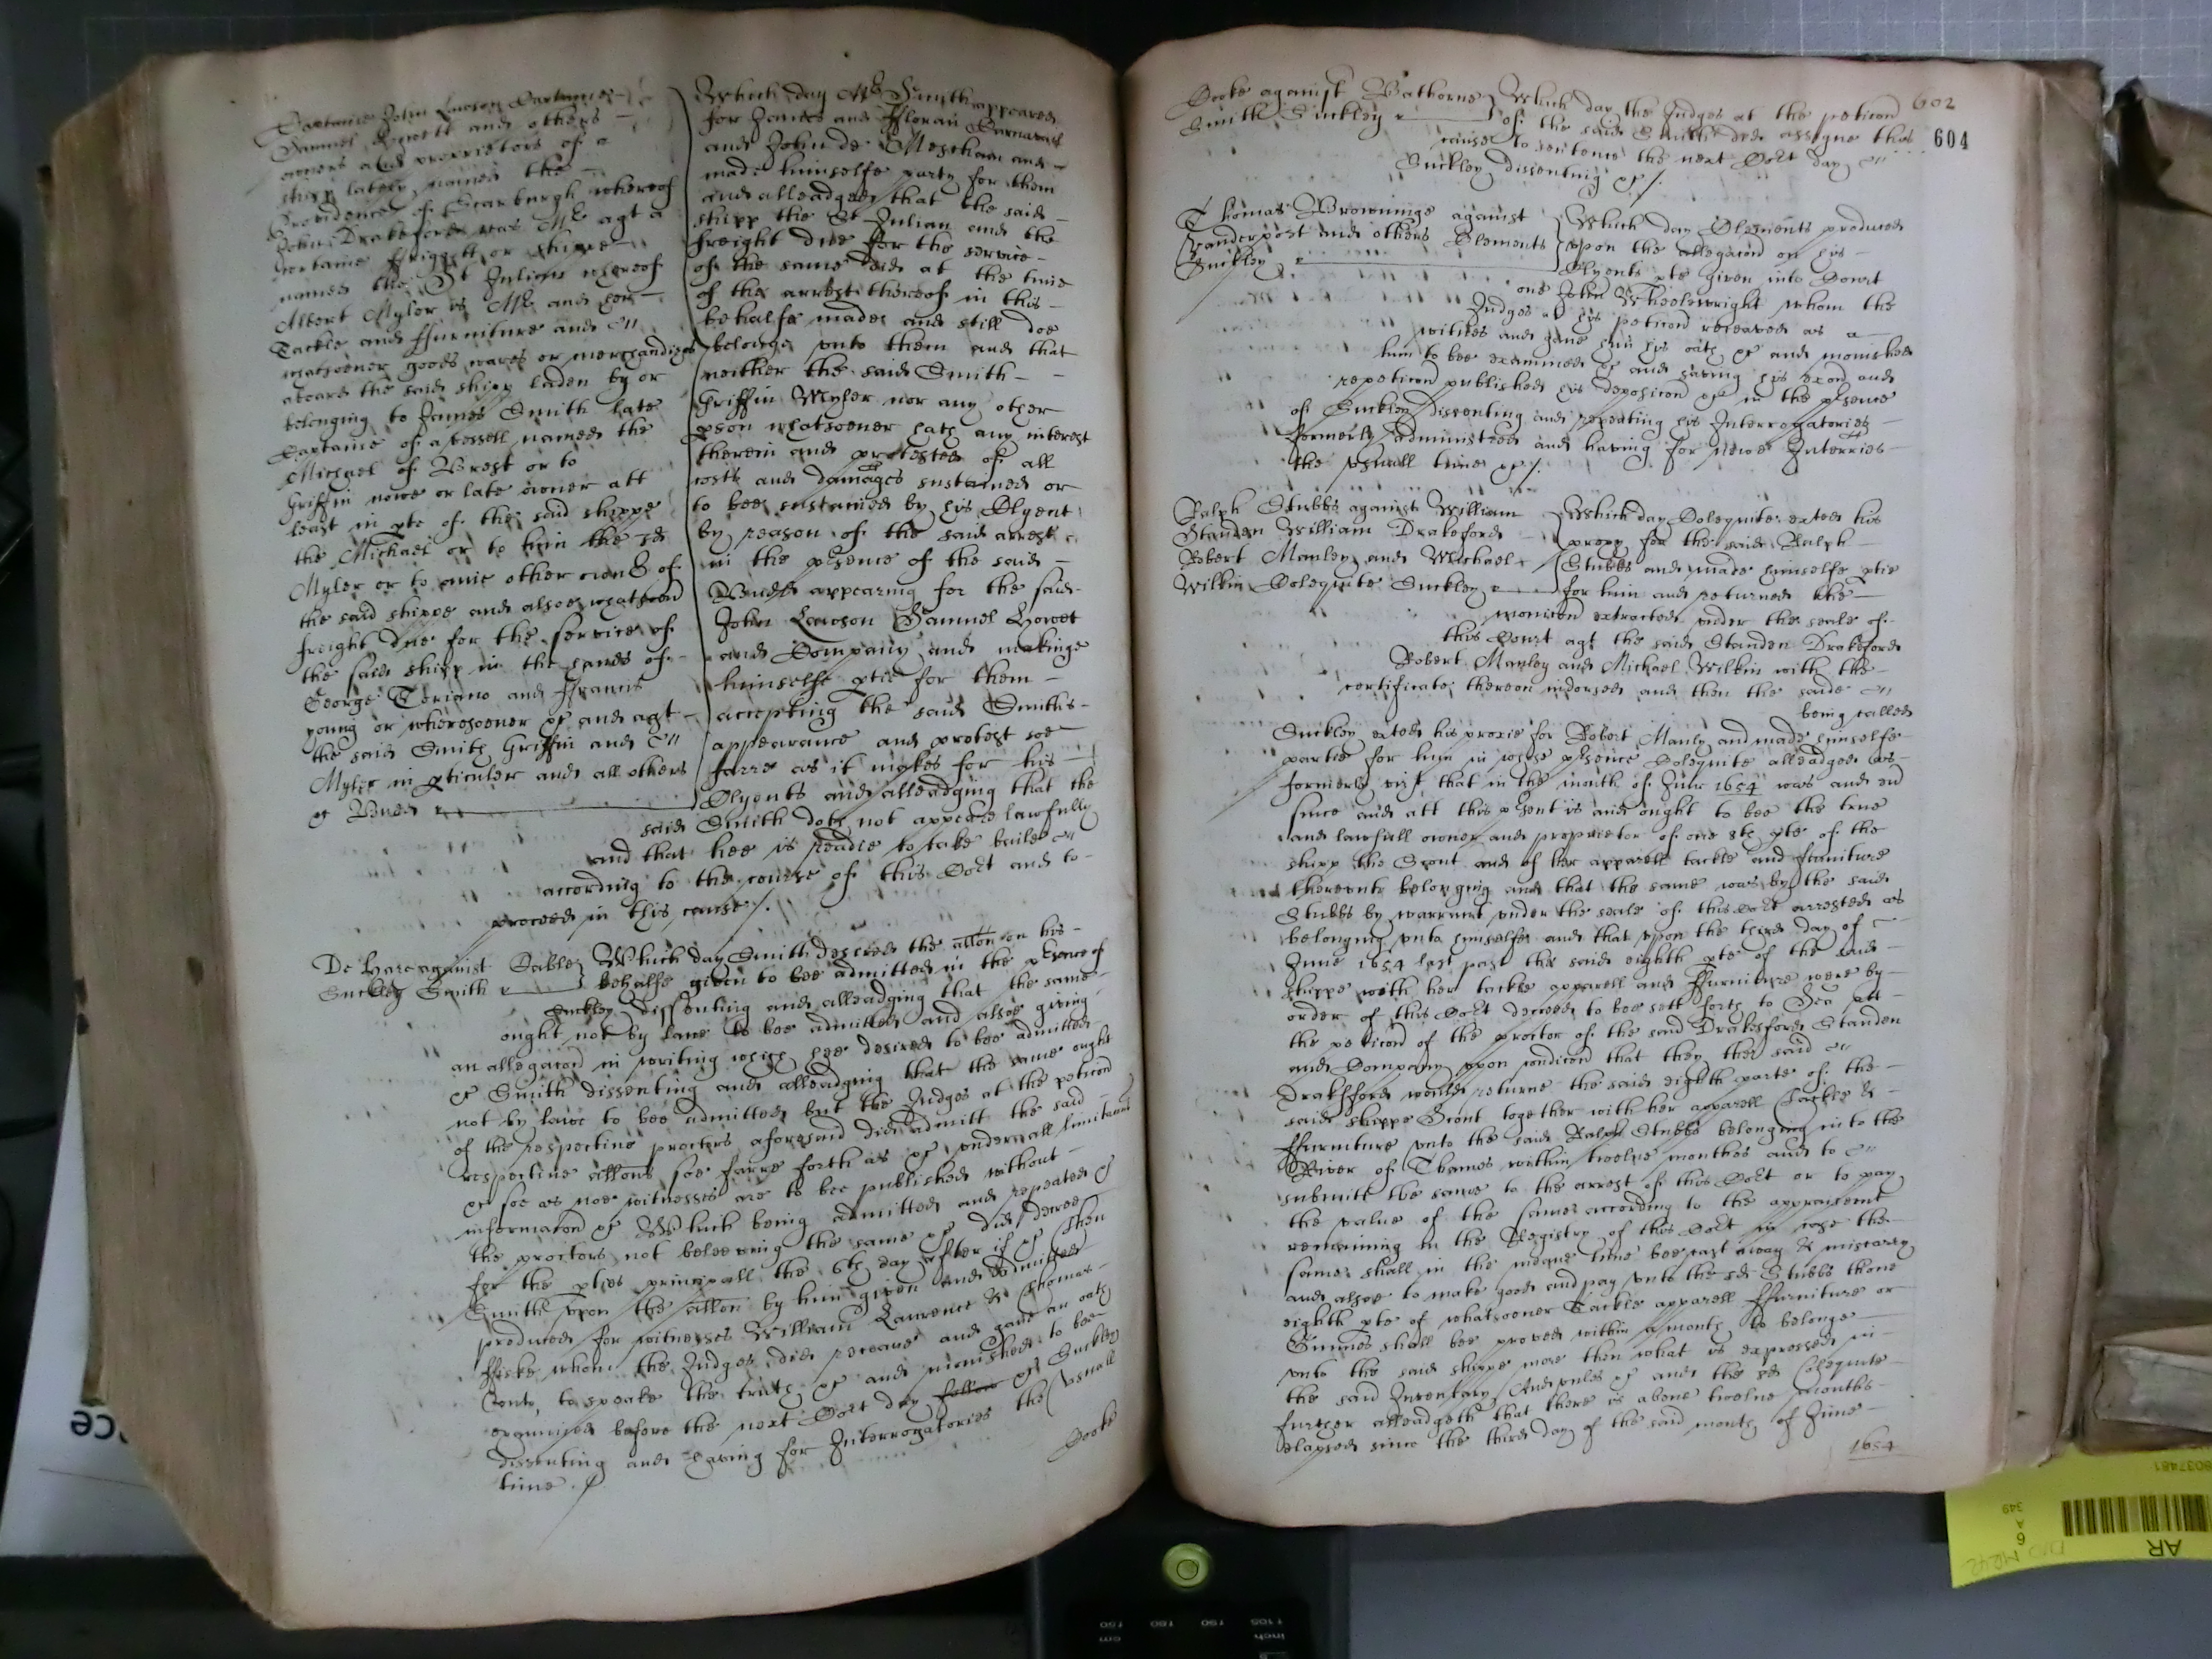 Captaine John Lawson Captaine
Samuel Howett and others
owners and proprietors of a
shipp lately named the
Providence of Scarburgh whereof
John Drakeford was Mr agt a
certaine ffriggott or shippe
named the St Julian whereof
Albert Myler is Mr and her
Tackle and ffurniture and
whatsoever goods wares or merchandizes
aboard the said shipp laden by or
belonging to James Smith late
Captaine of a vessell named the
Michael of Brest or to
Griffin nowe or late owner att
least in pte of the said shippe
the Michael or to him the sd
Myler or to anie other owners of
the said shippe and alsoe whatsoever
freight due for the service of
the said shipp in the hands of
George Toriano and ffrancis
young or wheresoever &c and agt
the said Smith Griffin and
Myler in pticuler and all others
&c Budd
Which day Mr Smith appeared
for James and fflorian
and John de Meschain and
made himselfe party for them
and alleadged that the said
shipp the St Julian and the
freight due for the service
of the same did at the time
of the arrest thereof in this
behalfe made and still doe
belonge unto them and that
neither the said Smith
Griffin Myler nor any other
pson whatsoever hath any interest
therein and protested of all
costs and damages sustained or
to bee sustained by his Clyent
by reason of the said arrest
in the psence of the said
Budd appearing for the said
John Lawson Samuel Howet
and Company and makinge
himselfe ptie for them
accepting the said Smiths
appearance and protest soe
farre as it makes for his
Clyents and alleadging that the
said Smith doth not appeare lawfully
and that hee is readie to take baile
according to the course of this Cort and to
proceed in this cause /.
De Haze against Cable
Suckley Smith
Which day Smith desired the allon on his
behalfe given to bee admitted in the psence of
Suckley dissenting and alleadging that the same
ought not by lawe to bee admitted and alsoe giving
an allegacon in writing which hee desired to bee admitted
&c Smith dissenting and alleadging that the same ought
not by lawe to bee admitted but the Judges at the peticon
of the respective proctors aforesaid did admitt the said
respective allons soe farre forth as &c under all limitacons
&c soe as noe witnesses are to bee published without
informacon &c Which being admitted and repeated &c
the proctors not beleeving the same &c did decree
for the pties principall the 6th day after if &c then
Smith upon the allon by him given and admitted
produced for witnesses William Laurence & Thomas
ffiske whom the Judges did receave and gave an oath
unto, to speake the truth &c and monished to bee
examined before the next Cort day follow &c Suckley
dissenting and having for Interrogatories the usuall
time. &c
Cooke
Cooke against Bathorne
Smith Suckley
Which day the Judges at the peticon
of the said Smith did assigne this
cause to sentence the next Cort day
Suckley dissenting &c /.
602
604
Thomas Browninge against
Vanderpost and others Clements
Suckley
Which day Clements produced
upon the allegacon on his
Clyents pte given into Court
one John Wheelewright whom the
Judges at his peticon receaved as a
witnes and gave him his oath &c and monished
him to bee examined &c and having his exon and
repeticon published his deposicon &c in the psence
of Suckley dissenting and repeating his Interrogatories
formerly administred and having for newe Interries
the usuall time &c /.
Ralph Stubbs against William
Standen William Drakeford
Robert Manley and Michael
Wilkin Colequite Suckley
Which day Colequite exted his
proxy for the said Ralph
Stubbs and made himselfe ptie
for him and returned the
monicon extracted under the seale of
this Court agt the said Standen Drakeford
Robert Manley and Michael Wilkin with the
certificate thereon indorsed and then the saide
being called
Suckley exted his proxie for Robert Manly and made himselfe
partie for him in whose psence Colequite alleadged as
formerly vizt that in the month of June 1654 was and ed
since and att this psent is and ought to bee the true
and lawfull owner and proprietor of one 8th pte of the
shipp the Scout and of her apparell tackle and furniture
thereunto belonging and that the same was by the said
Stubbs by warrant under the seale of this Cort arrested as
belonging unto himselfe and that upon the third day of
June 1654 last past the said eighth pte of the said
shippe with her tackle apparell and ffurniture were by
order of this Cort decreed to bee sett forth to Sea att
the peticon of the proctor of the said Drakesford Standen
and Company upon condicon that they the said
Drakesford would returne the said eighth parte of the
said shippe Scout together with her apparell Tackle &
ffurniture unto the said Ralph Stubbs belonging into the
River of Thames within twelve monthes and to
submitt the same to the arrest of this Cort or to pay
the value of the same according to the appraisement
remaining in the Registry of this Cort in case the
same shall in the meane time bee cast away & miscarry
and alsoe to make good and pay unto the sd Stubbs thone
eighth pte of whatsoever Tackle apparell ffurniture or
Gunnes shall bee proved within a month to belonge
unto the said shippe more then what is expressed in
the said Inventary And unles &c and the sd Colequite
further alleadgeth that there is above twelve months
elapsed since the third day of the said month of June
1654